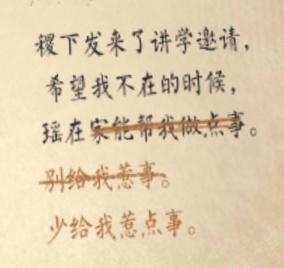 稷下发来了讲学邀请，
希望我不在的时候，
瑶在家能帮我做点事。
别给我惹事。
少给我惹点事。